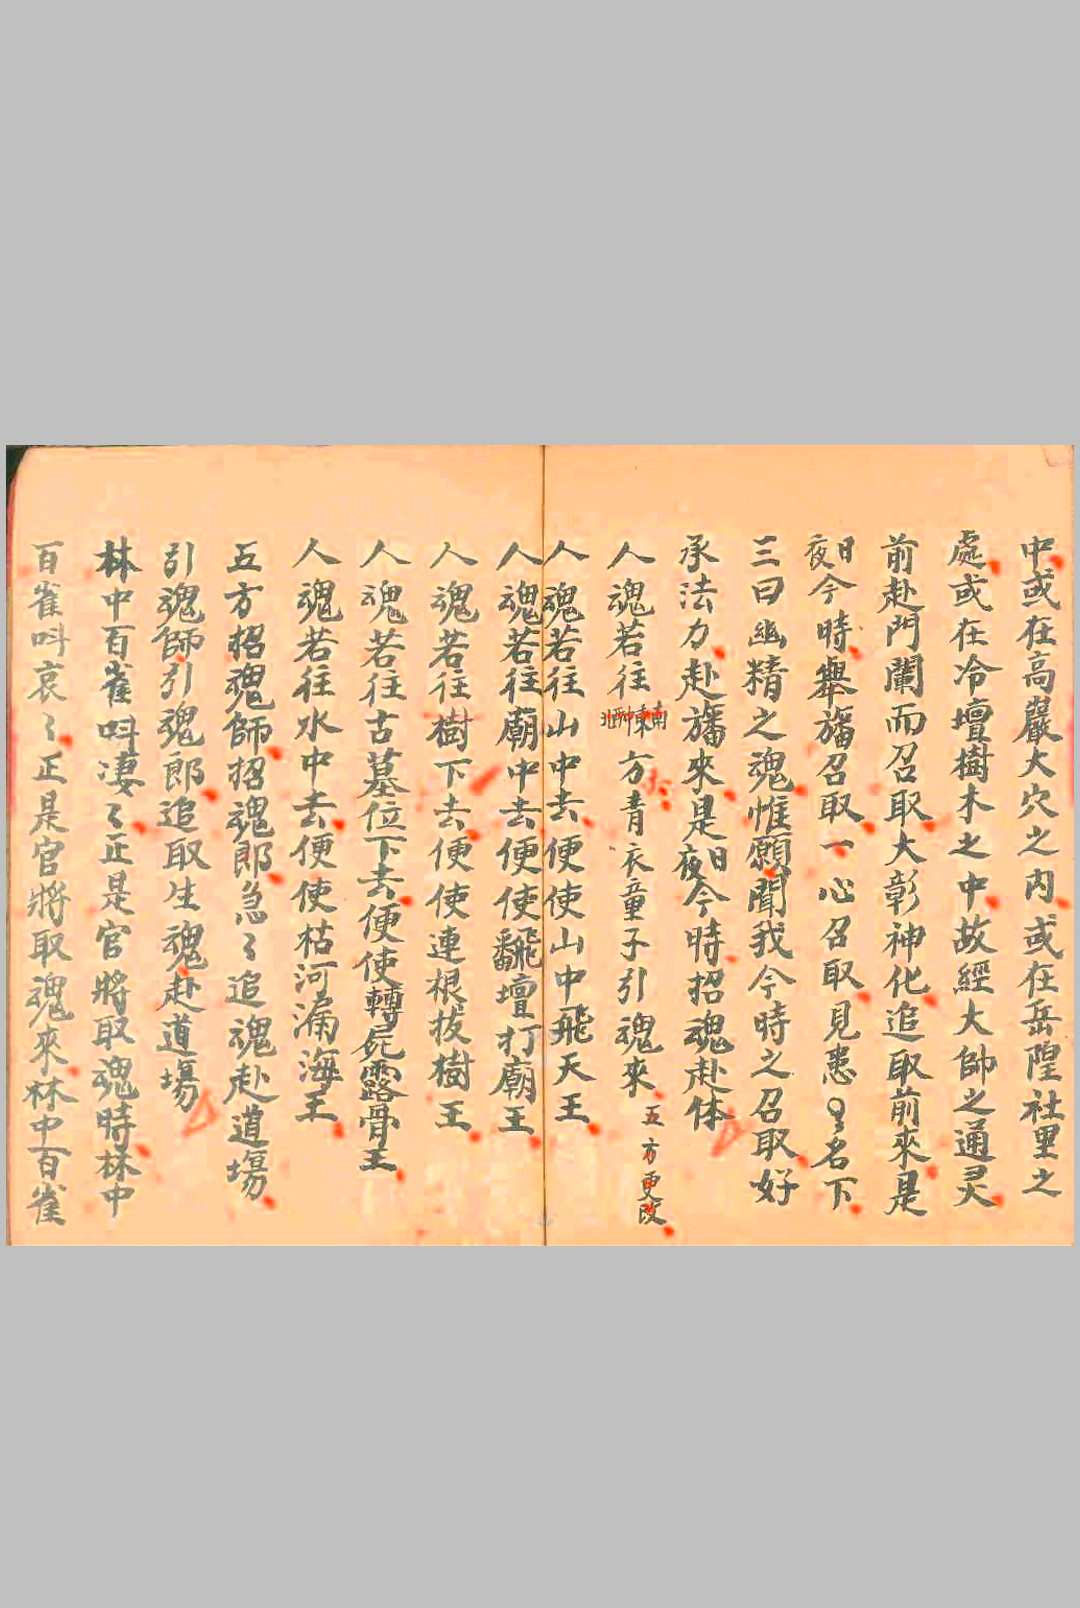 中或在高巖大穴之内或在岳隍社里之
處或在冷壇樹木之中故經大帥之通灵
前赴門闌而召取大彰神化追取前來是
日夜今時舉旛召取一心召取見患名下
三曰幽精之魂惟願聞我今時之召取好
承法力赴旛來是日夜今時招魂赴体
人魂若往東南中西北方青衣童子引魂來五方更改
人魂若往山中去便使山中飛天王
人魂若往廟中去便使飛翻壇打廟王
人魂若往樹下去便使連根拔樹王
人魂若往古墓位下去便使轉屍露骨王
人魂若往水中去便使枯河漏海王
五方招魂師招魂郎急〻追魂赴道塲
引魂師引魂郎追取生魂赴道塲
林中百雀呌凄〻正是官將取魂時林中
百雀呌哀〻正是官將取魂來林中百雀